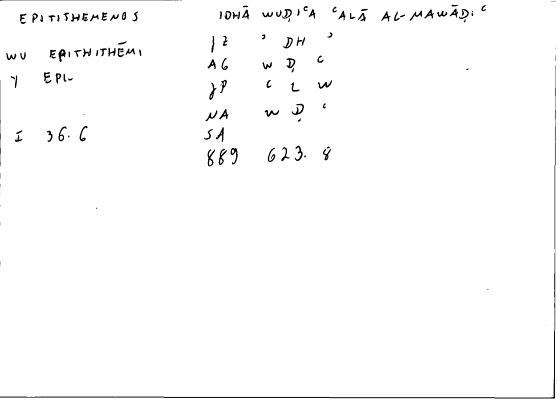 EPITITHEMENOS IDHĀ WUḌIʿA ʿALĀ AL-MAWĀḌIʿ
WU EPITHITHĒMI JZ ʾ DH ʾ
Y EPI- AG W Ḍ ʿ
JP ʿ L W
NA W Ḍ ʿ
I 36.6 SA
889 623.8